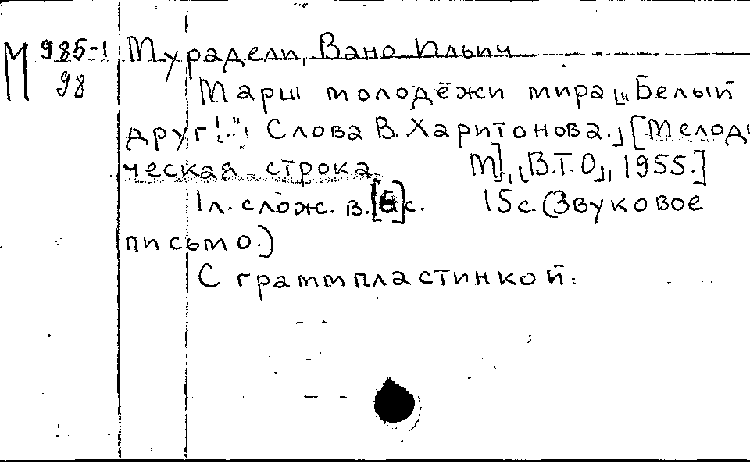 М 985-1 Мурадели, Вано Ильич
98 Марш молодёжи мира „Белый
друг!..“ Слова В. Харитонова. [Мелоди
ческая строка. М], [В.Т.О], 1955.]
1 л. слож. в. [6] с. 15 с. (Звуковое
письмо.)
С грампластинкой.